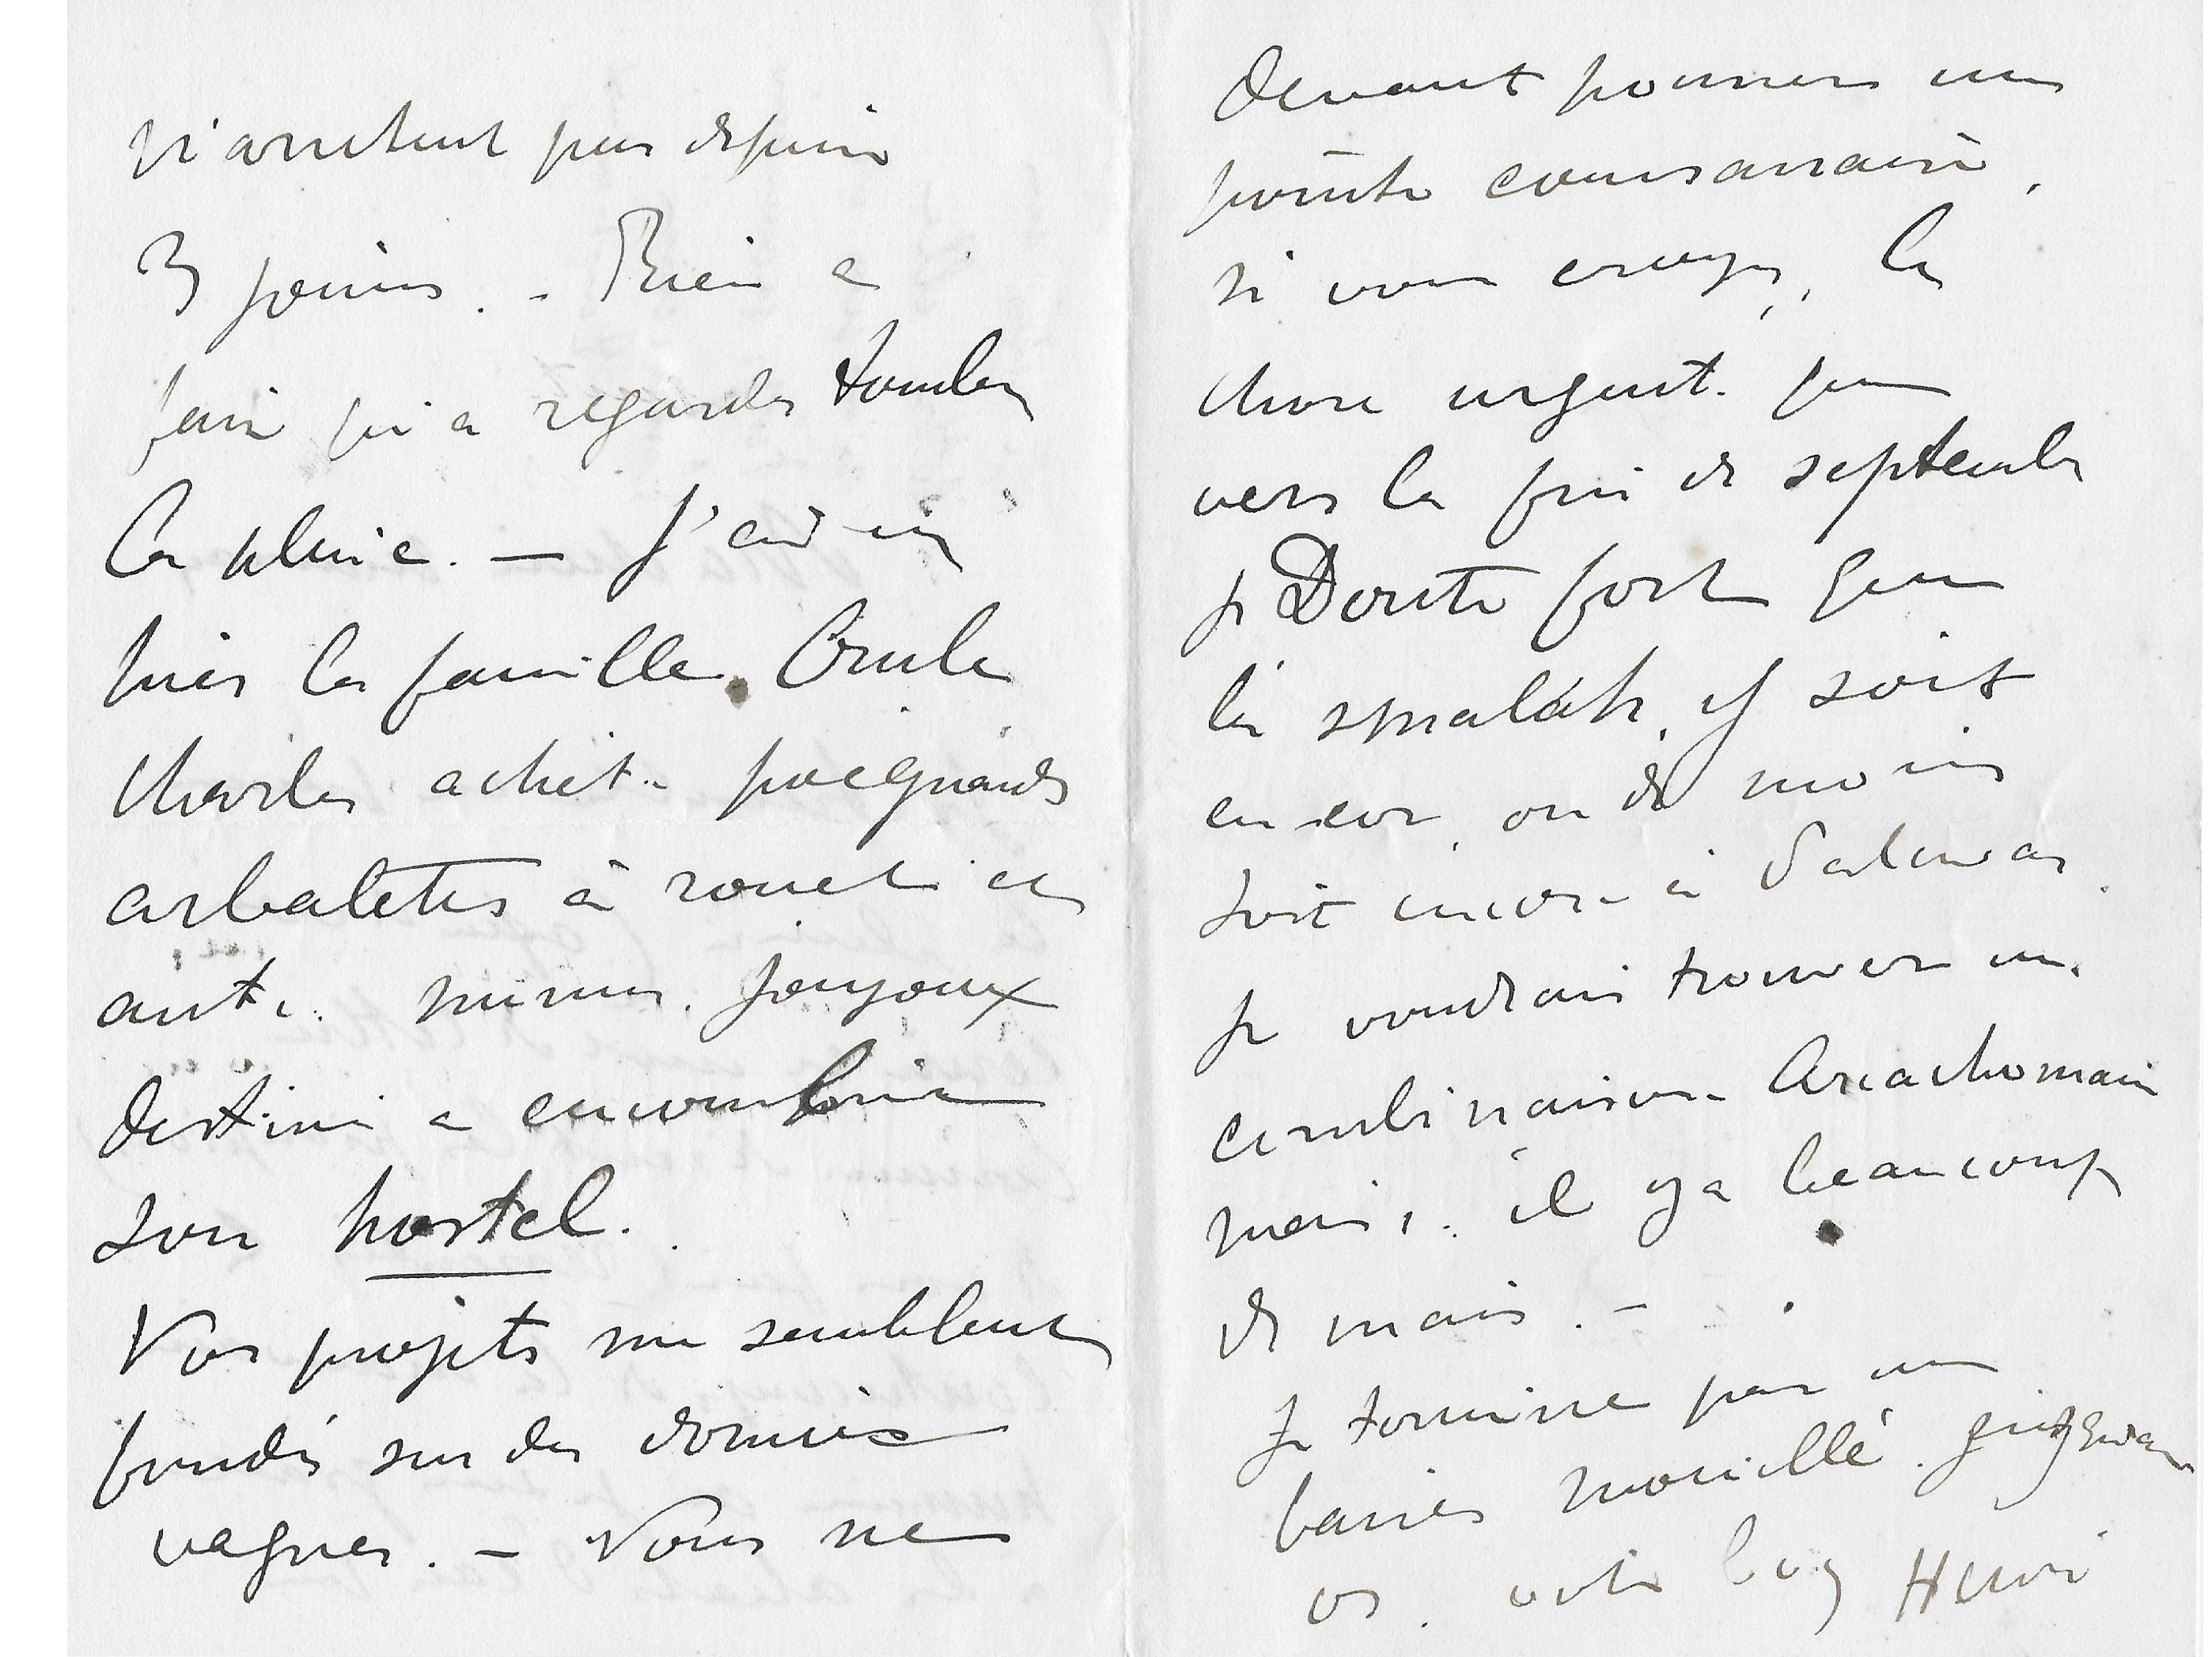 n'arretent pas depuis
3 jours. - Rien a
faire qu'a regarder tomber
la pluie. — J'ai vu
hier la famille. Oncle
Charles achete poignards
arbaletes à rouet et
autres menus joujoux
destinés a encombrer
son hostel.
Vos projets me semblent
fondés sur des données
vagues. - Vous ne
devant pousser une
pointe
si vous croyez, la
chose urgente. que
vers la fin de septembre
je Doute fort que
la smalah y soit
encor, ou du moins
soit encore à
je voudrais trouver une
combinaison Arcachonnaise
mais, il y a beaucoup
de mais. -
Je termine par un
baiser mouillé.
os. votre boy Henri